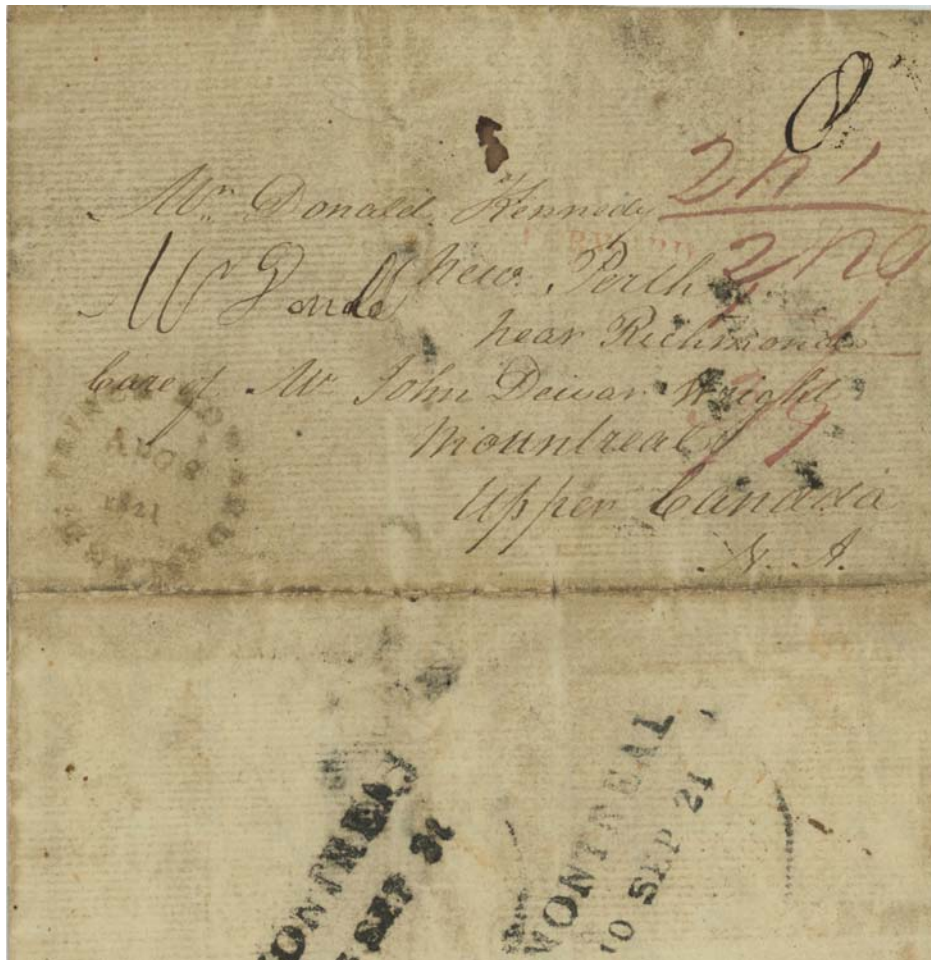 2N1
Mr. Donald Kennedy
FORWARD
2N9
New Perth
Mr Donald
near Richmond
Care of Mr John Dewar Wright
Mountreal
3/9
Upper Canada
N. A.
AUG 8
1821
MONTREAL
SEP
MONTREAL
10 SEP 21